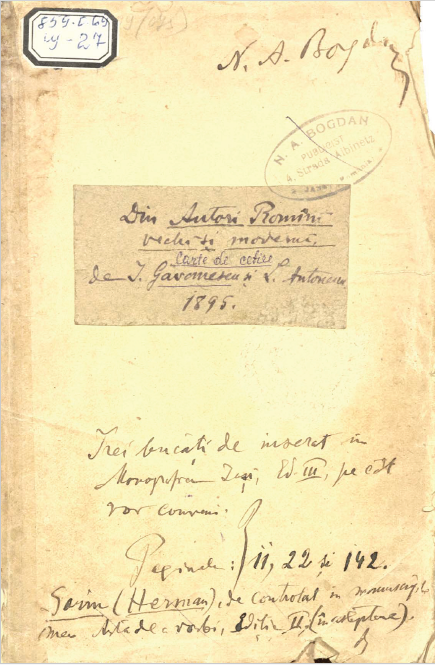 859.C.69
y-27
N. A. Bogdan
N. A. BOGDAN
PUBLICIST
4, Strada Albineţ
Din Autori Români
vechi și moderni,
Carte de cetire
de I. Gavanescu și L. Antonescu
1895.
Trei bucăți de inserat in
Monografia Iași, Ed. III, pe cât
vor conveni.
Paginele: 11, 22 și 142.
Gorun (Herman), de controlat in manuscrisul
meu Arta de a vorbi, Ediția II (în așteptare).